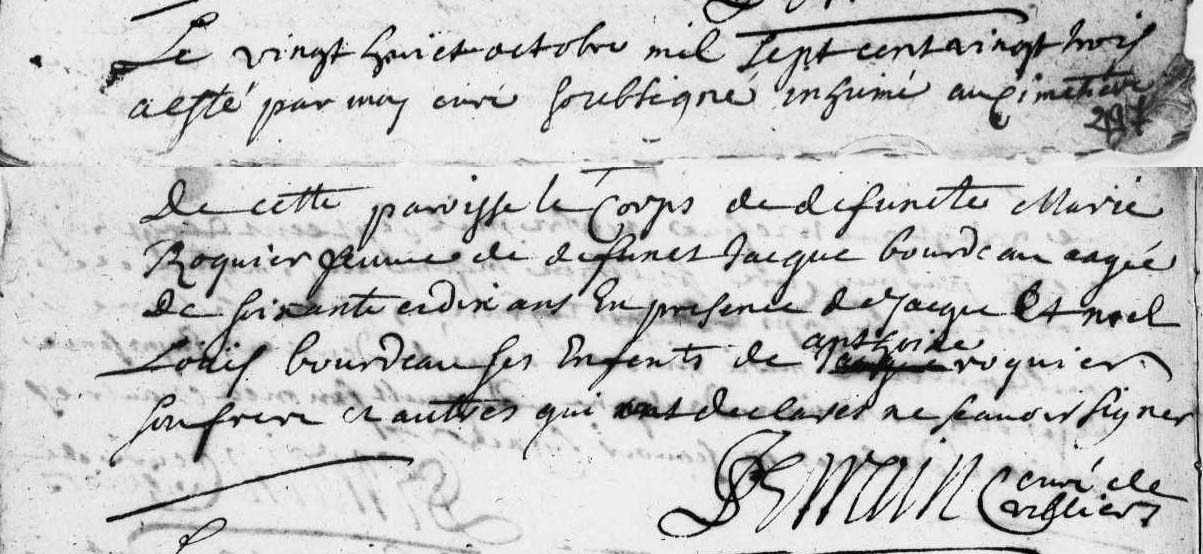 Le vingt huict octobre mil sept cent vingt trois
a esté par moy curé soubsigné inhumé au cimetiere
297
De cette paroisse le Corps de defuncte Marie
Roquier femme de defunct Jacque bourdeau aagée
de soixante et dix ans En presence de Jacque Et noel
Louis bourdeau ses Enfents de anthoine roquier
son frere et autres qui ont declarer ne scavoir signer
curé de
villiers